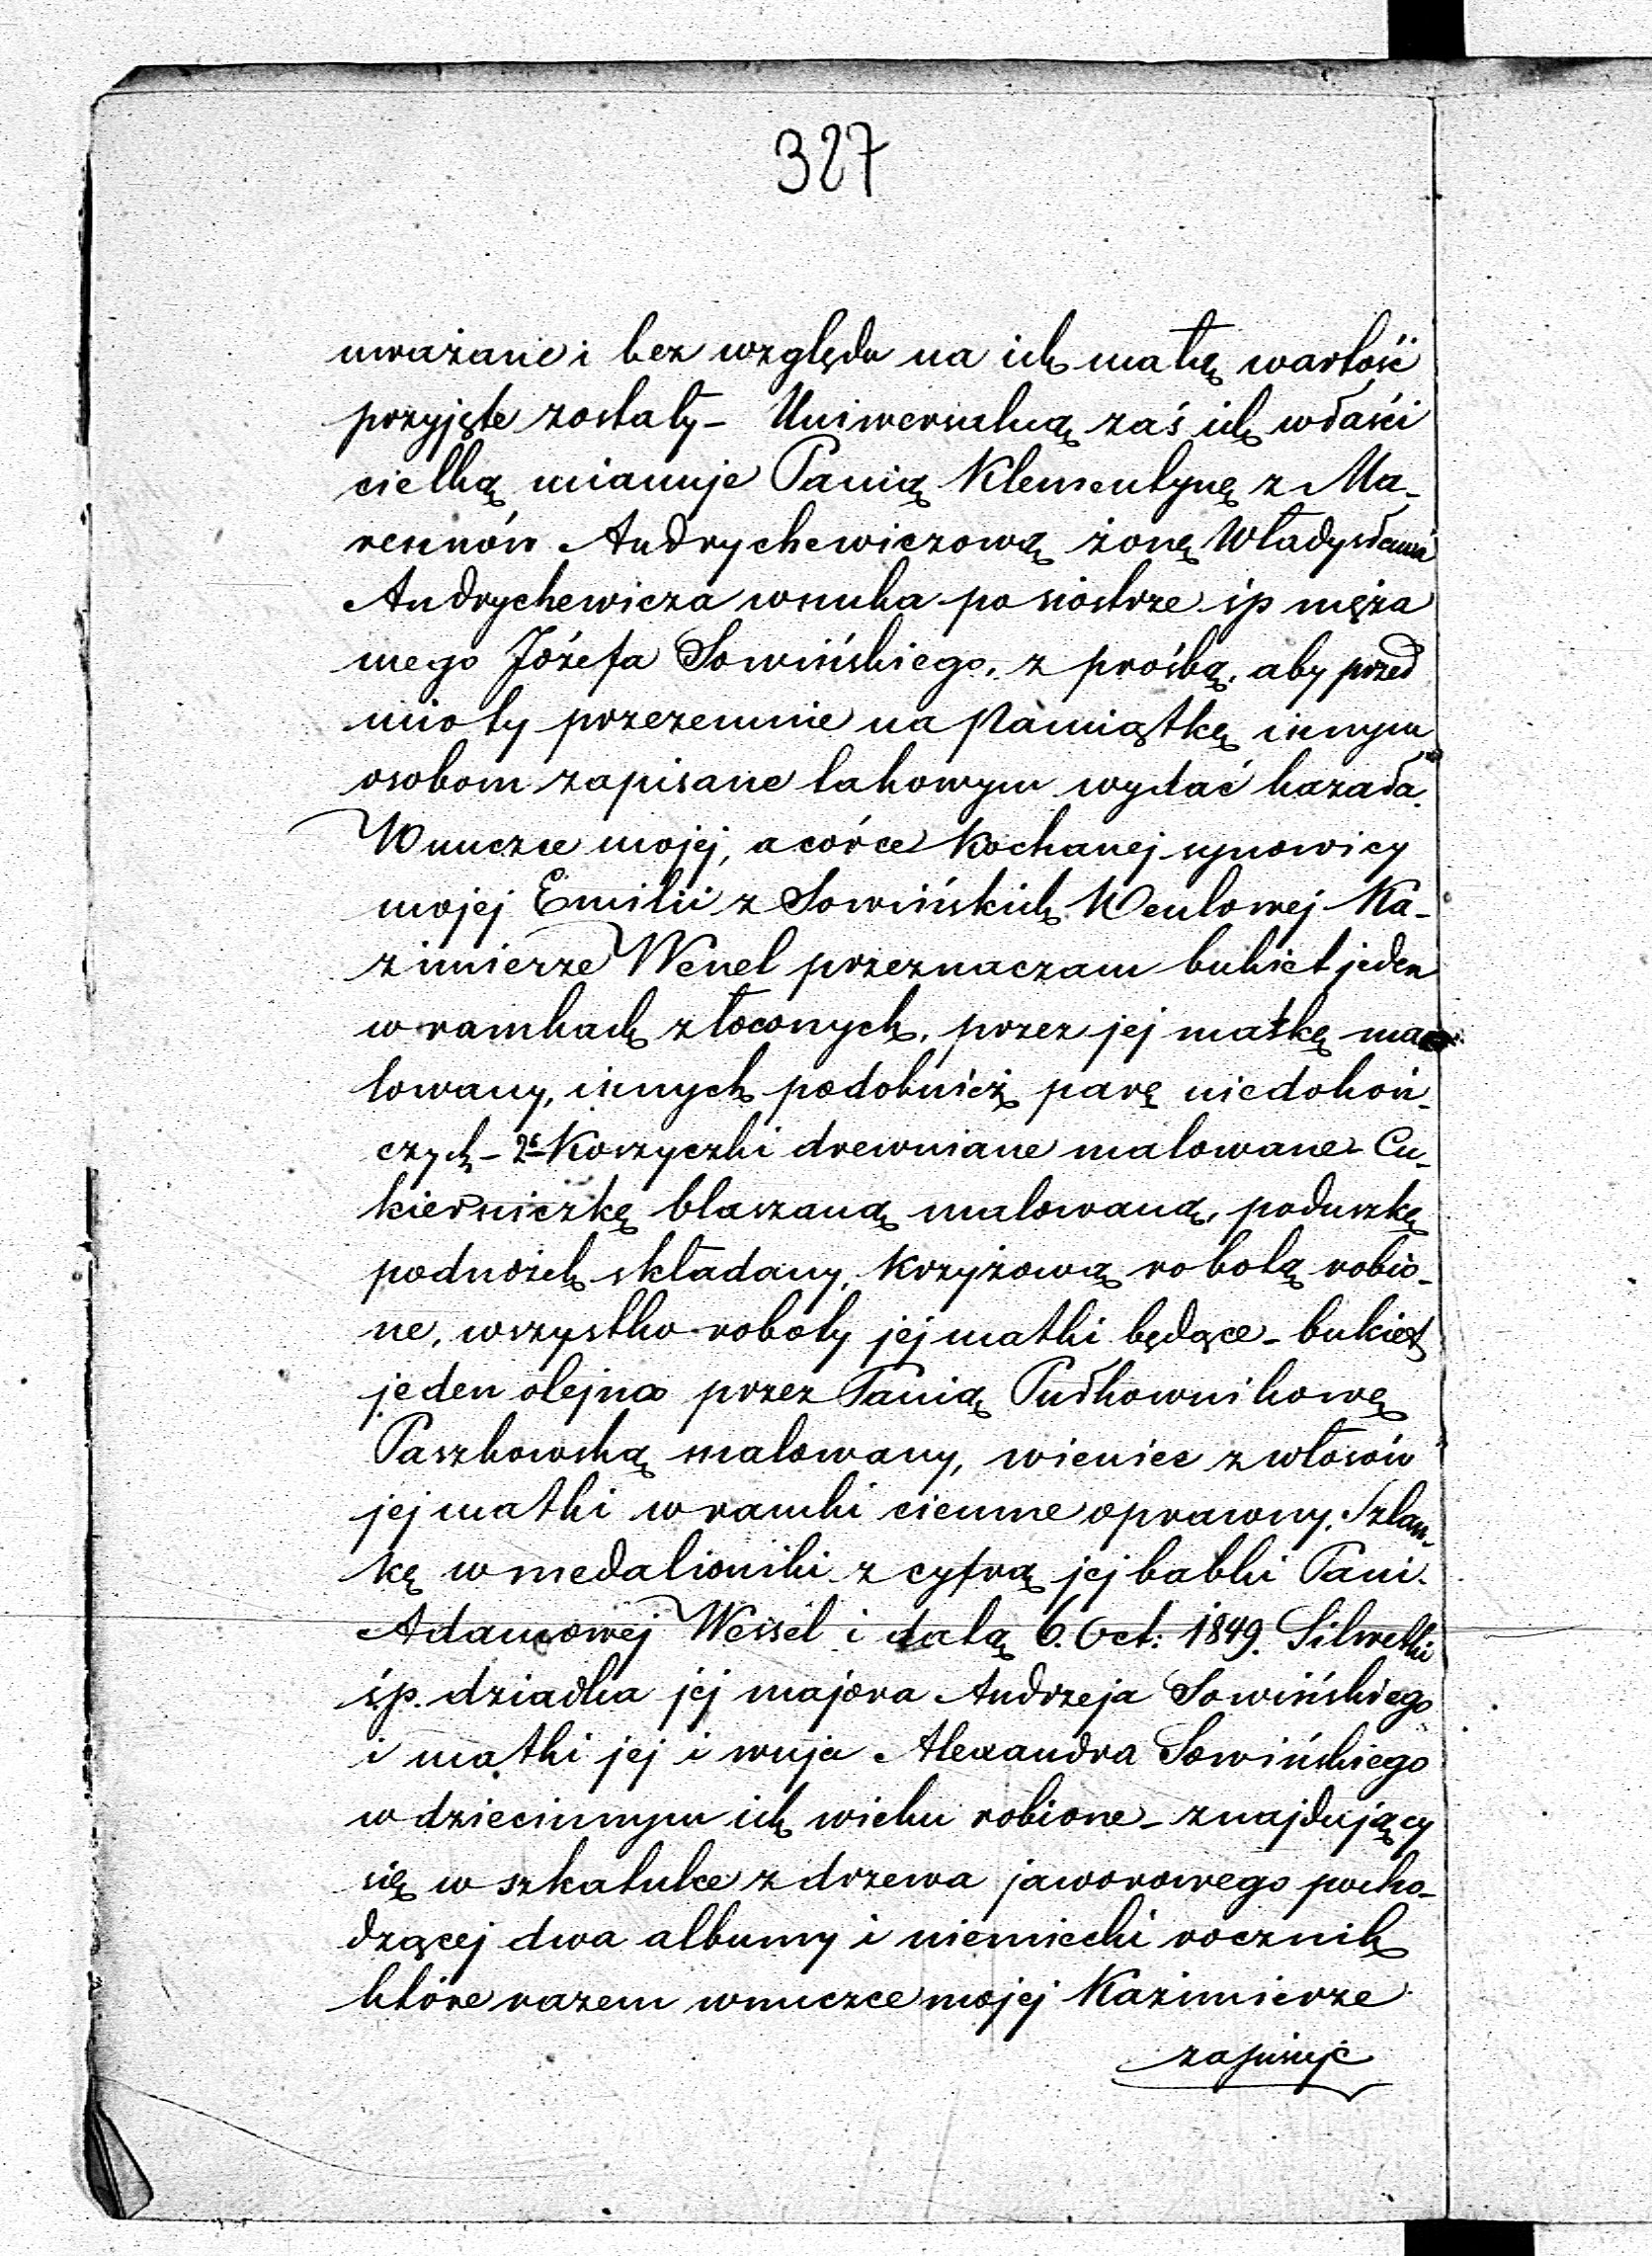 327
uważane i bez względu na ich małą wartość
przyjęte zostały – Uniwersalną zaś ich właści
cielką mianuje Panią Klementynę z Ma-
resnów Andrychewiczową żonę Władysława
Andrychewicza wnuka po siostrze śp męża
mego Józefa Sowińskiego, z prośbą, aby przed
mioty przezemnie na Pamiątkę innym
osobom zapisane takowym wydać kazała.
Wnuczce mojej, a córce Kochanej synowicy
mojej Emilii z Sowińskich Wenlowej Ka-
zimierze Wenel przeznaczam bukiet jeden
w ramkach złoconych, przez jej matkę ma
lowany, innych podobnież parę niedokoń-
czych – 2 Koszyczki drewniane malowane – Cu-
kierniczkę blaszaną malowaną, poduszkę
podnóżek składany, Krzyżową robotą robio-
ne, wszystko roboty jej matki będące – bukiet
jeden olejno przez Panią Pułkownikowę
Paszkowską malowany, wieniec z włosów
jej matki w ramki ciemne oprawny. Szlan-
kę w medalioniki z cyfrą jej babki Pani
Adamowej Wessel i datą 6. Oct: 1849. Silwetki
śp. dziadka jej majora Andrzeja Sowińskiego
i matki jej i wuja Alexandra Sowińskiego
w dziecinnym ich wieku robione – znajdujący
się w szkatułce z drzewa jaworowego pocho-
dzącej dwa albumy i niemiecki rocznik
które razem wnuczce mojej Kazimierze
zapisuje